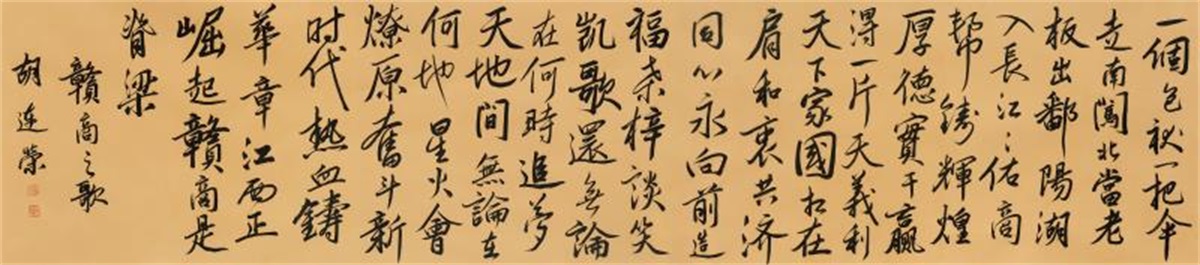 一個包袱一把伞
走南闖北當老
板出鄱陽湖
入長江〻佑商
幫鑄輝煌
厚德實干贏
得一片天義利
天下家國扛在
肩和衷共济
同心永向前造
福桑梓談笑
凱歌還無論
在何時追夢
天地間無論在
何地星火會
燎原奮斗新
时代熱血鑄
華章江西正
崛起贛商是
脊梁
贛商之歌
胡连榮